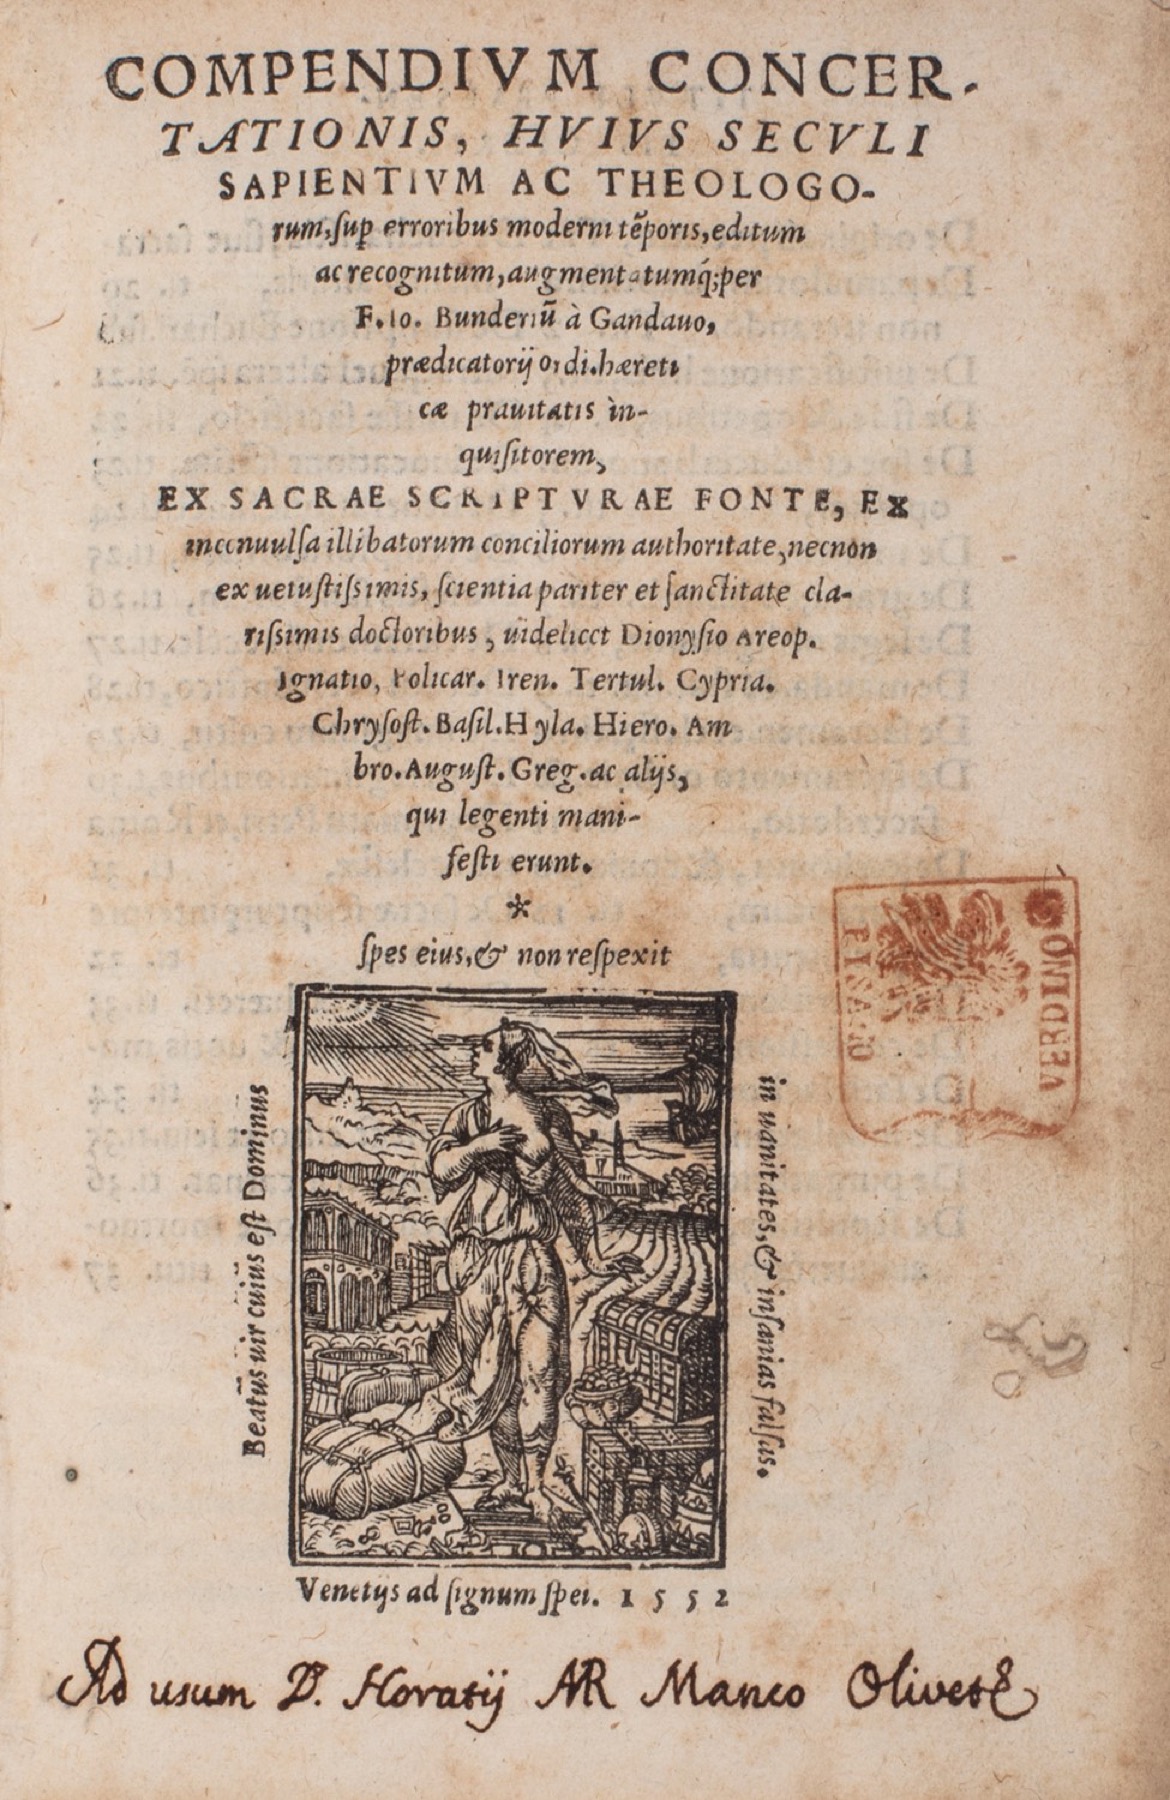 COMPENDIVM CONCER-
TATIONIS, HVIVS SECVLI
SAPIENTIVM AC THEOLOGO-
rum, sup̱ erroribus moderni tẽporis, editum
ac recognitum, augmentatumq́;per
F. Io. Bunderiū à Gandauo,
prædicatorij ordi. hæreti
cæ prauitatis in-
quisitorem,
EX SACRAE SCRIPTVRAE FONTE, EX
inconuulsa illibatorum conciliorum authoritate, necnon
ex uetustissimis, scientia pariter et sanctitate cla-
rissimis doctoribus, uidelicet Dionysio Areop.
Ignatio, Policar. Iren. Tertul. Cypria.
Chrysost. Basil. Hyla. Hiero. Am
bro. August. Greg. ac alijs,
qui legenti mani-
festi erunt.
*
spes eius, & non respexit
Beatus uir cuius est Dominus
in uanitates, & insanias falsas.
PISANO
VERDINO
Venetijs ad signum spei. 1552
Ad usum D. Horatij AR Manco